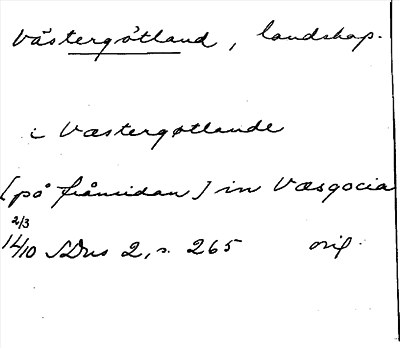 Västergötland, landskap.
i Væstergøtlande
[på frånsidan] in Væsgocia
2/3
14/10 SDns 2, s. 265 orig.